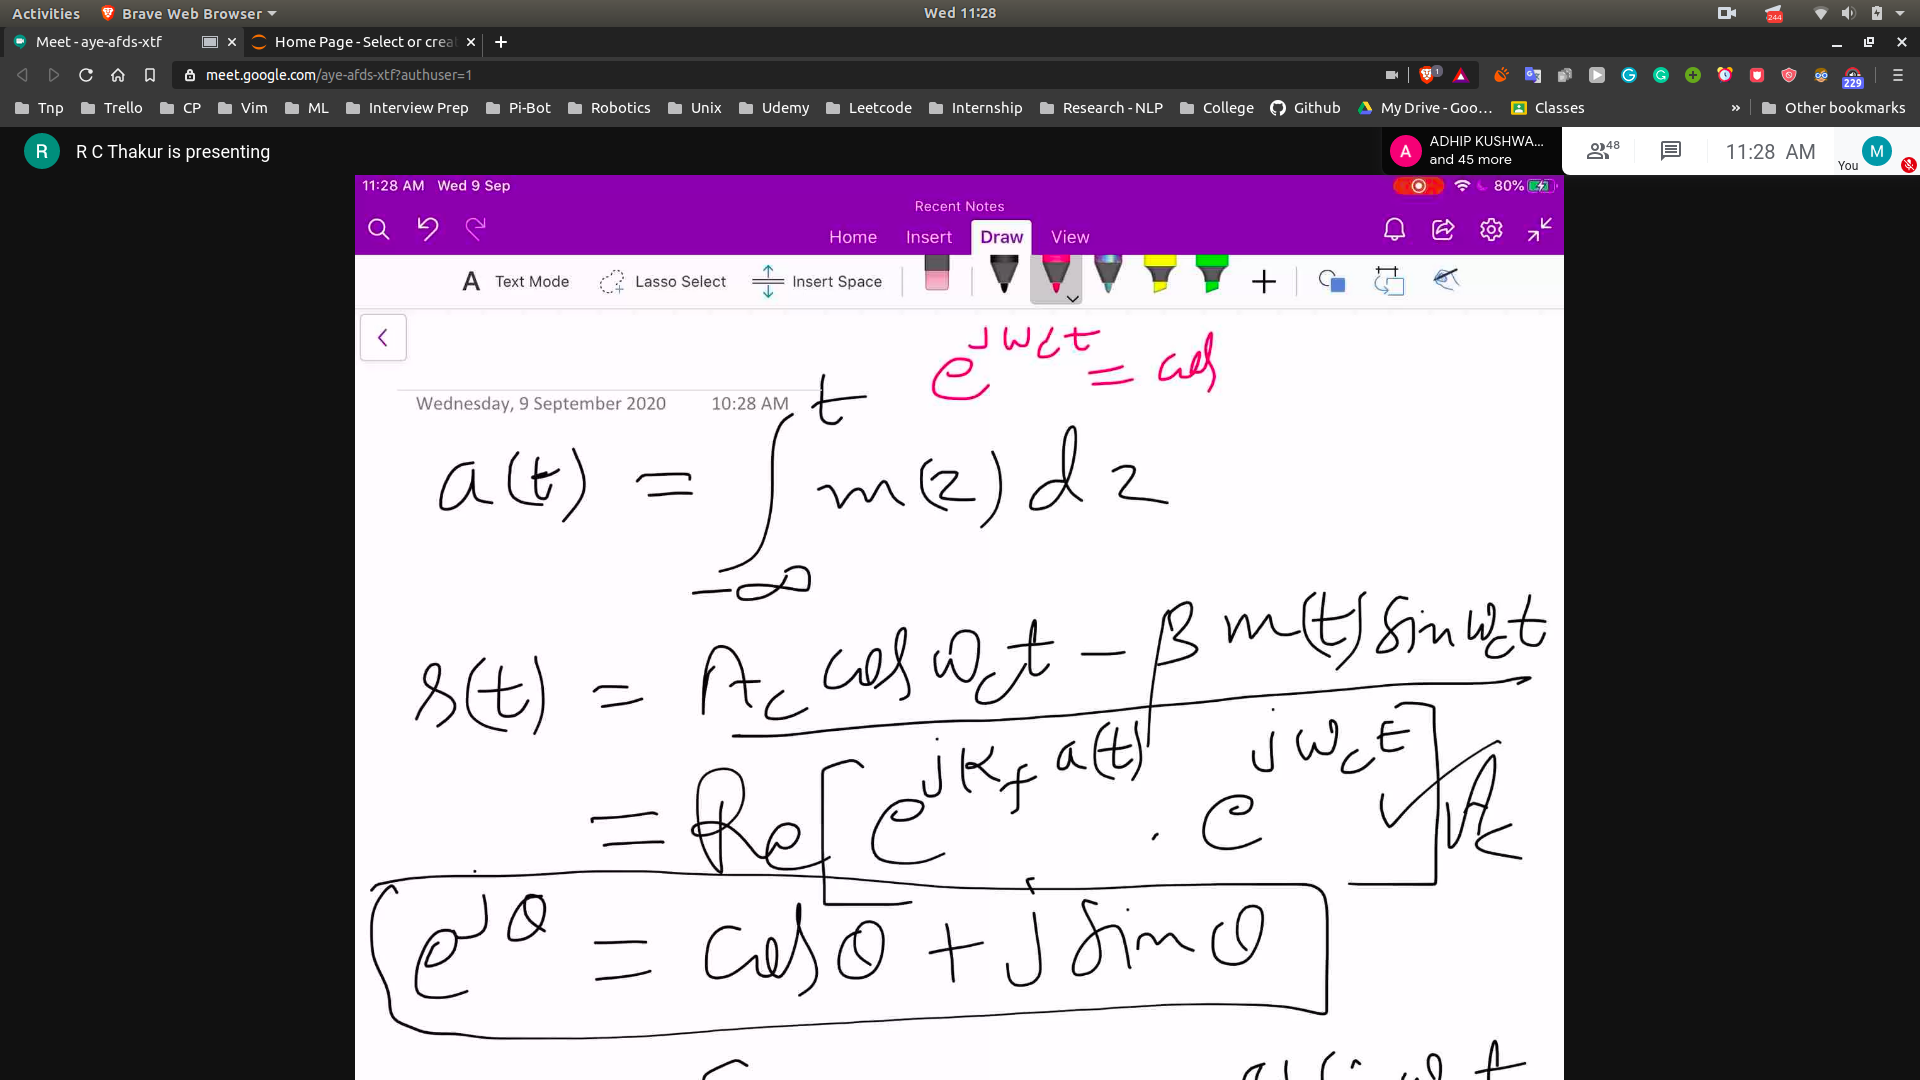 Activities Brave Web Browser Wed 11:28 244
Meet - aye-afds-xtf Home Page - Select or crea
meet.google.com/aye-afds-xtf?authuser=1 1 229
Tnp Trello CP Vim ML Interview Prep Pi-Bot Robotics Unix Udemy Leetcode Internship Research - NLP College Github My Drive - Goo... Classes » Other bookmarks
R R C Thakur is presenting A ADHIP KUSHWA... and 45 more 48 11:28 AM You M
11:28 AM Wed 9 Sep 80%
Recent Notes
Home Insert Draw View
A Text Mode Lasso Select Insert Space
e^{jω_c t} = cos
Wednesday, 9 September 2020 10:28 AM
a(t) = ∫_{-∞}^{t} m(z) dz
s(t) = A_c cos ω_c t - β m(t) sin ω_c t
= Re[e^{jK_f a(t)} . e^{jω_c t}] A_c
e^{jθ} = cos θ + j sin θ